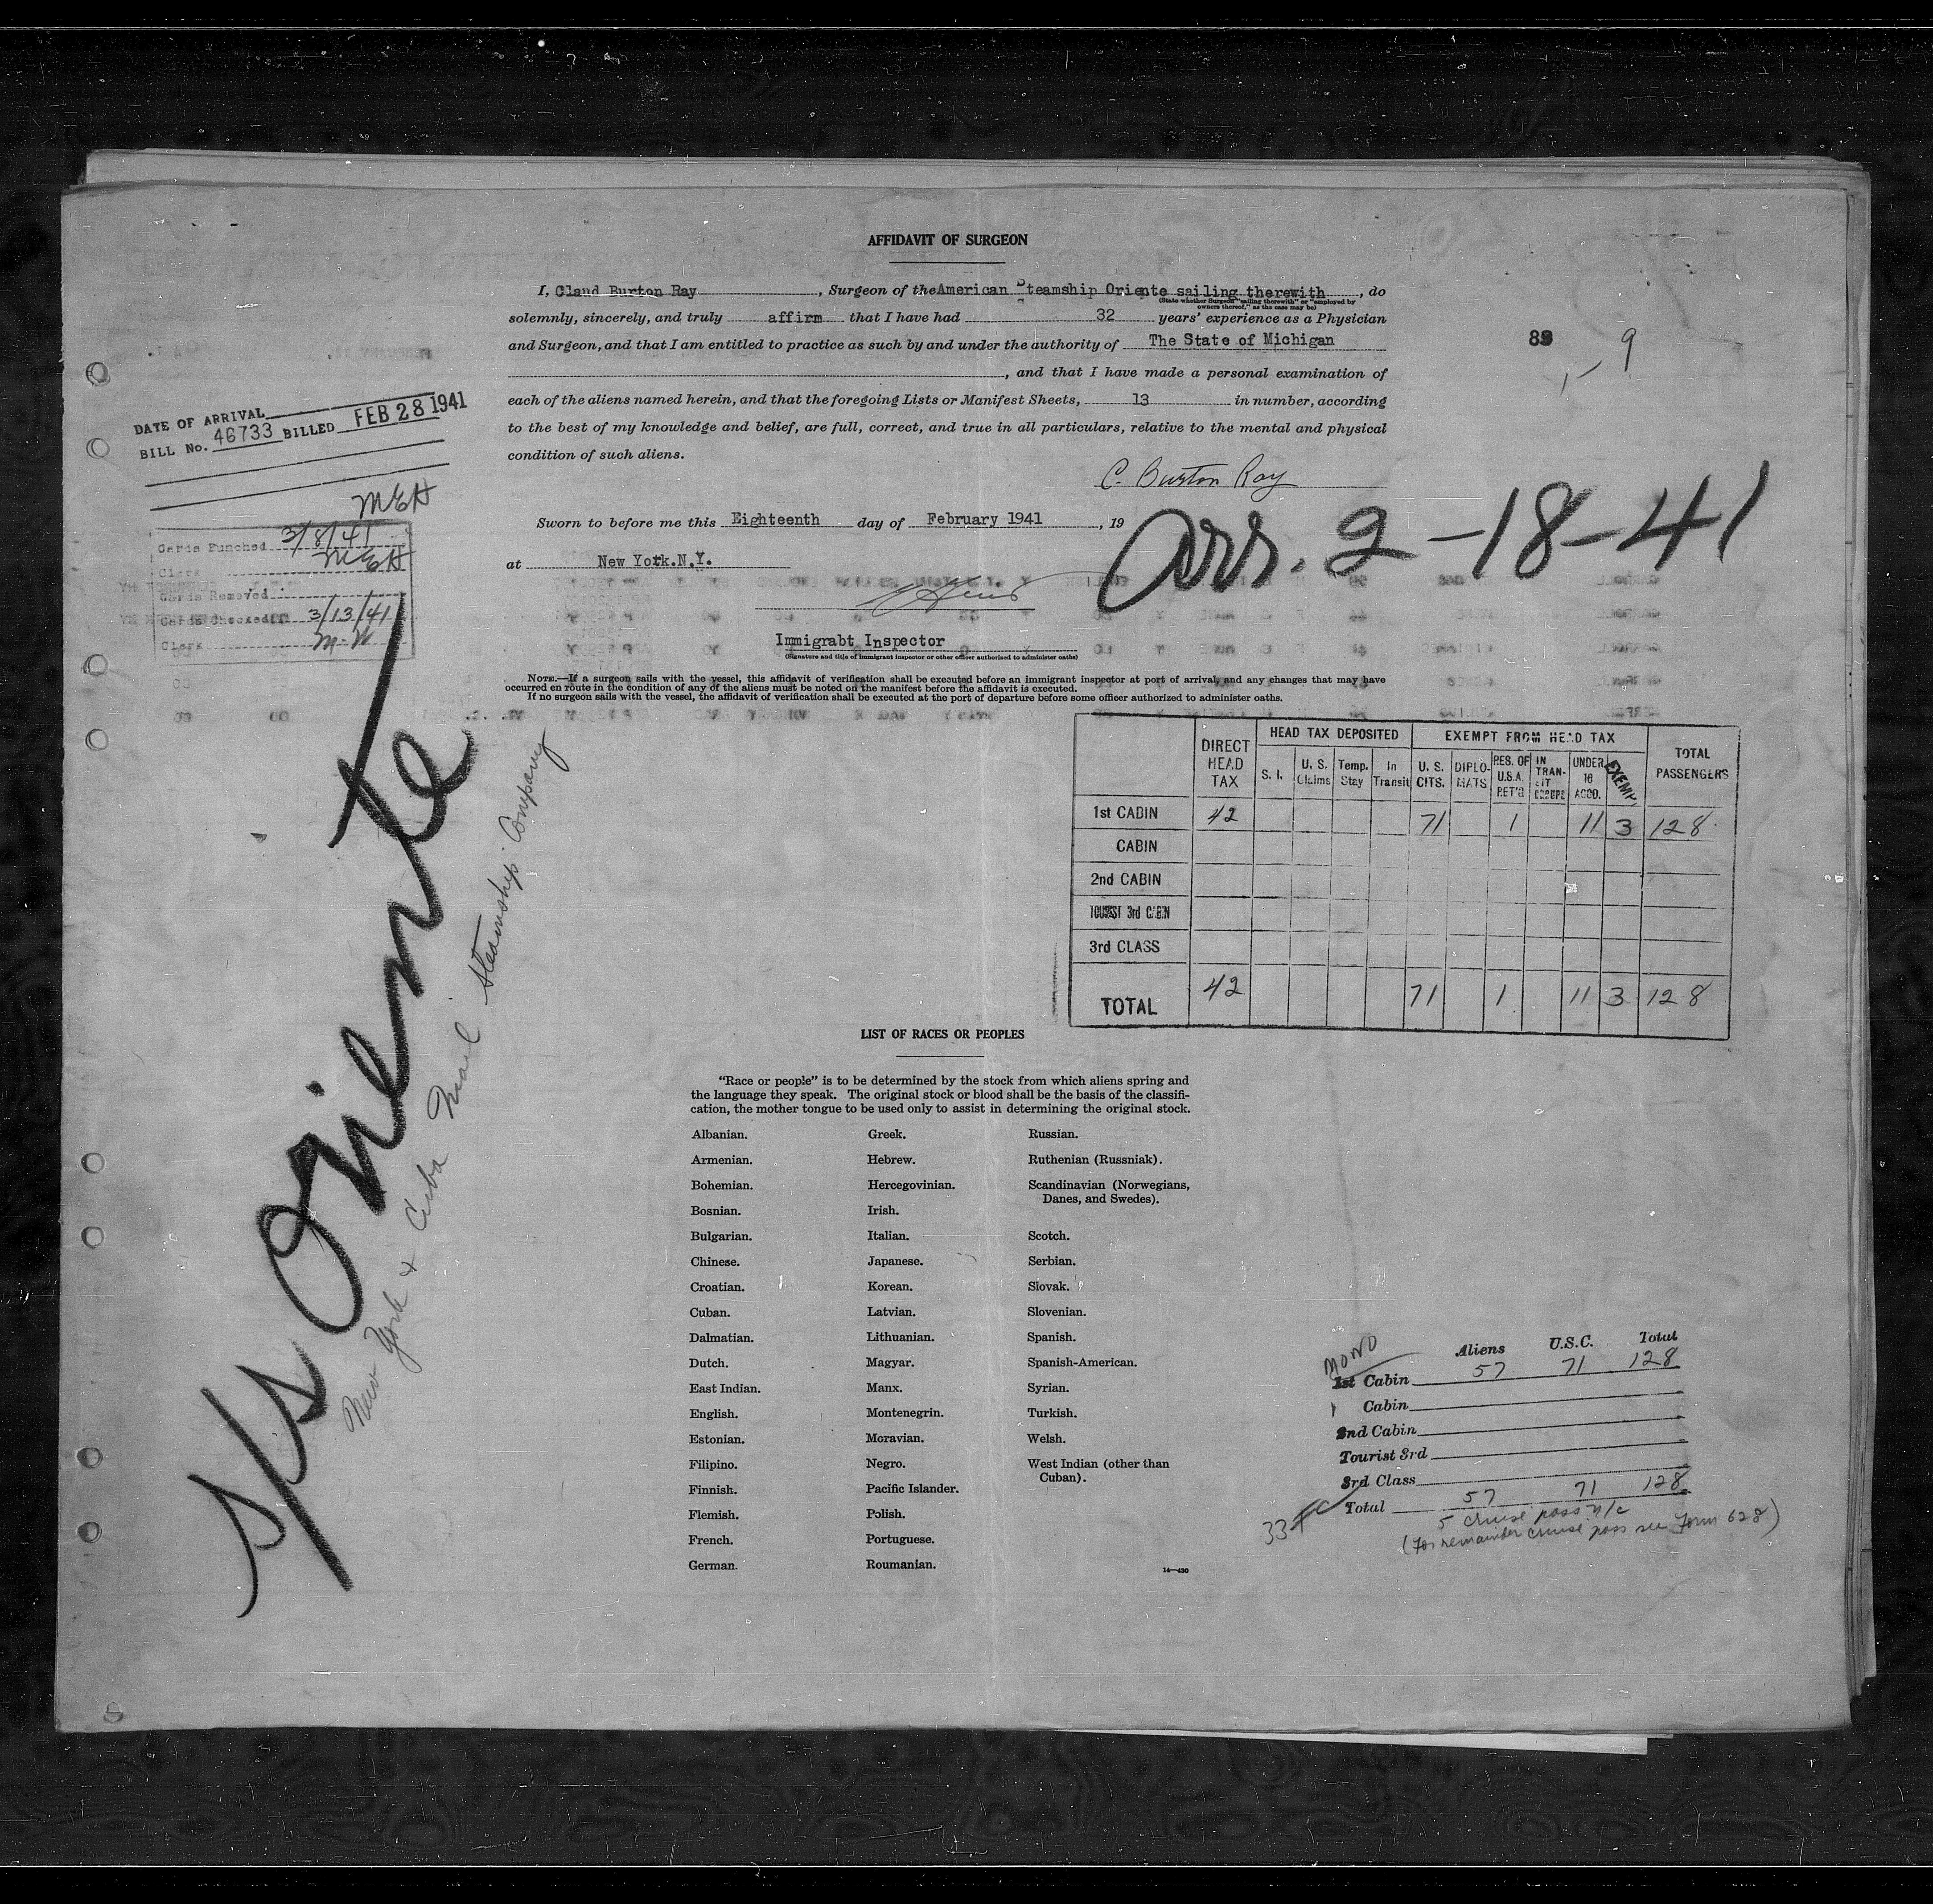 AFFIDAVIT OF SURGEON
I, Claud Burton Ray, Surgeon of the American Steamship Oriente sailing therewith, do
(State whether Surgeon "sailing therewith" or "employed by
owners thereof," as the case may be)
solemnly, sincerely, and truly affirm that I have had 32 years' experience as a Physician
and Surgeon, and that I am entitled to practice as such by and under the authority of The State of Michigan
, and that I have made a personal examination of
each of the aliens named herein, and that the foregoing Lists or Manifest Sheets, 13 in number, according
to the best of my knowledge and belief, are full, correct, and true in all particulars, relative to the mental and physical
condition of such aliens.
C. Burton Ray
Sworn to before me this Eighteenth day of February 1941, 19
at New York.N.Y.
Immigrabt Inspector
(Signature and title of immigrant inspector or other officer authorized to administer oaths)
NOTE.—If a surgeon sails with the vessel, this affidavit of verification shall be executed before an immigrant inspector at port of arrival, and any changes that may have
occurred en route in the condition of any of the aliens must be noted on the manifest before the affidavit is executed.
If no surgeon sails with the vessel, the affidavit of verification shall be executed at the port of departure before some officer authorized to administer oaths.
9
Arr. 2-18-41
DATE OF ARRIVAL
BILL No. 46733 BILLED FEB 28 1941
MEH
Cards Punched 3/8/41
Clerk MEH
Cards Removed
Cards Checked 3/13/41
Clerk M-N
S/S Oriente
New York & Cuba Mail Steamship Company
DIRECT HEAD TAX
HEAD TAX DEPOSITED
EXEMPT FROM HEAD TAX
TOTAL PASSENGERS
S. I.
U. S. Claims
Temp. Stay
In Transit
U. S. CITS.
DIPLO-MATS
RES. OF U.S.A. RET'G
IN TRAN-SIT GROUPS
UNDER 16 ACCO.
EXEMP
1st CABIN 42 71 1 11 3 128
CABIN
2nd CABIN
TOURIST 3rd CABIN
3rd CLASS
TOTAL 42 71 1 11 3 128
LIST OF RACES OR PEOPLES
"Race or people" is to be determined by the stock from which aliens spring and
the language they speak. The original stock or blood shall be the basis of the classifi-
cation, the mother tongue to be used only to assist in determining the original stock.
Albanian.
Armenian.
Bohemian.
Bosnian.
Bulgarian.
Chinese.
Croatian.
Cuban.
Dalmatian.
Dutch.
East Indian.
English.
Estonian.
Filipino.
Finnish.
Flemish.
French.
German.
Greek.
Hebrew.
Hercegovinian.
Irish.
Italian.
Japanese.
Korean.
Latvian.
Lithuanian.
Magyar.
Manx.
Montenegrin.
Moravian.
Negro.
Pacific Islander.
Polish.
Portuguese.
Roumanian.
Russian.
Ruthenian (Russniak).
Scandinavian (Norwegians,
Danes, and Swedes).
Scotch.
Serbian.
Slovak.
Slovenian.
Spanish.
Spanish-American.
Syrian.
Turkish.
Welsh.
West Indian (other than
Cuban).
14—430
MONO
Aliens U.S.C. Total
1st Cabin 57 71 128
Cabin
2nd Cabin
Tourist 3rd
3rd Class
Total 57 71 128
5 cruise pass. n/c
(For remainder cruise pass see Form 628)